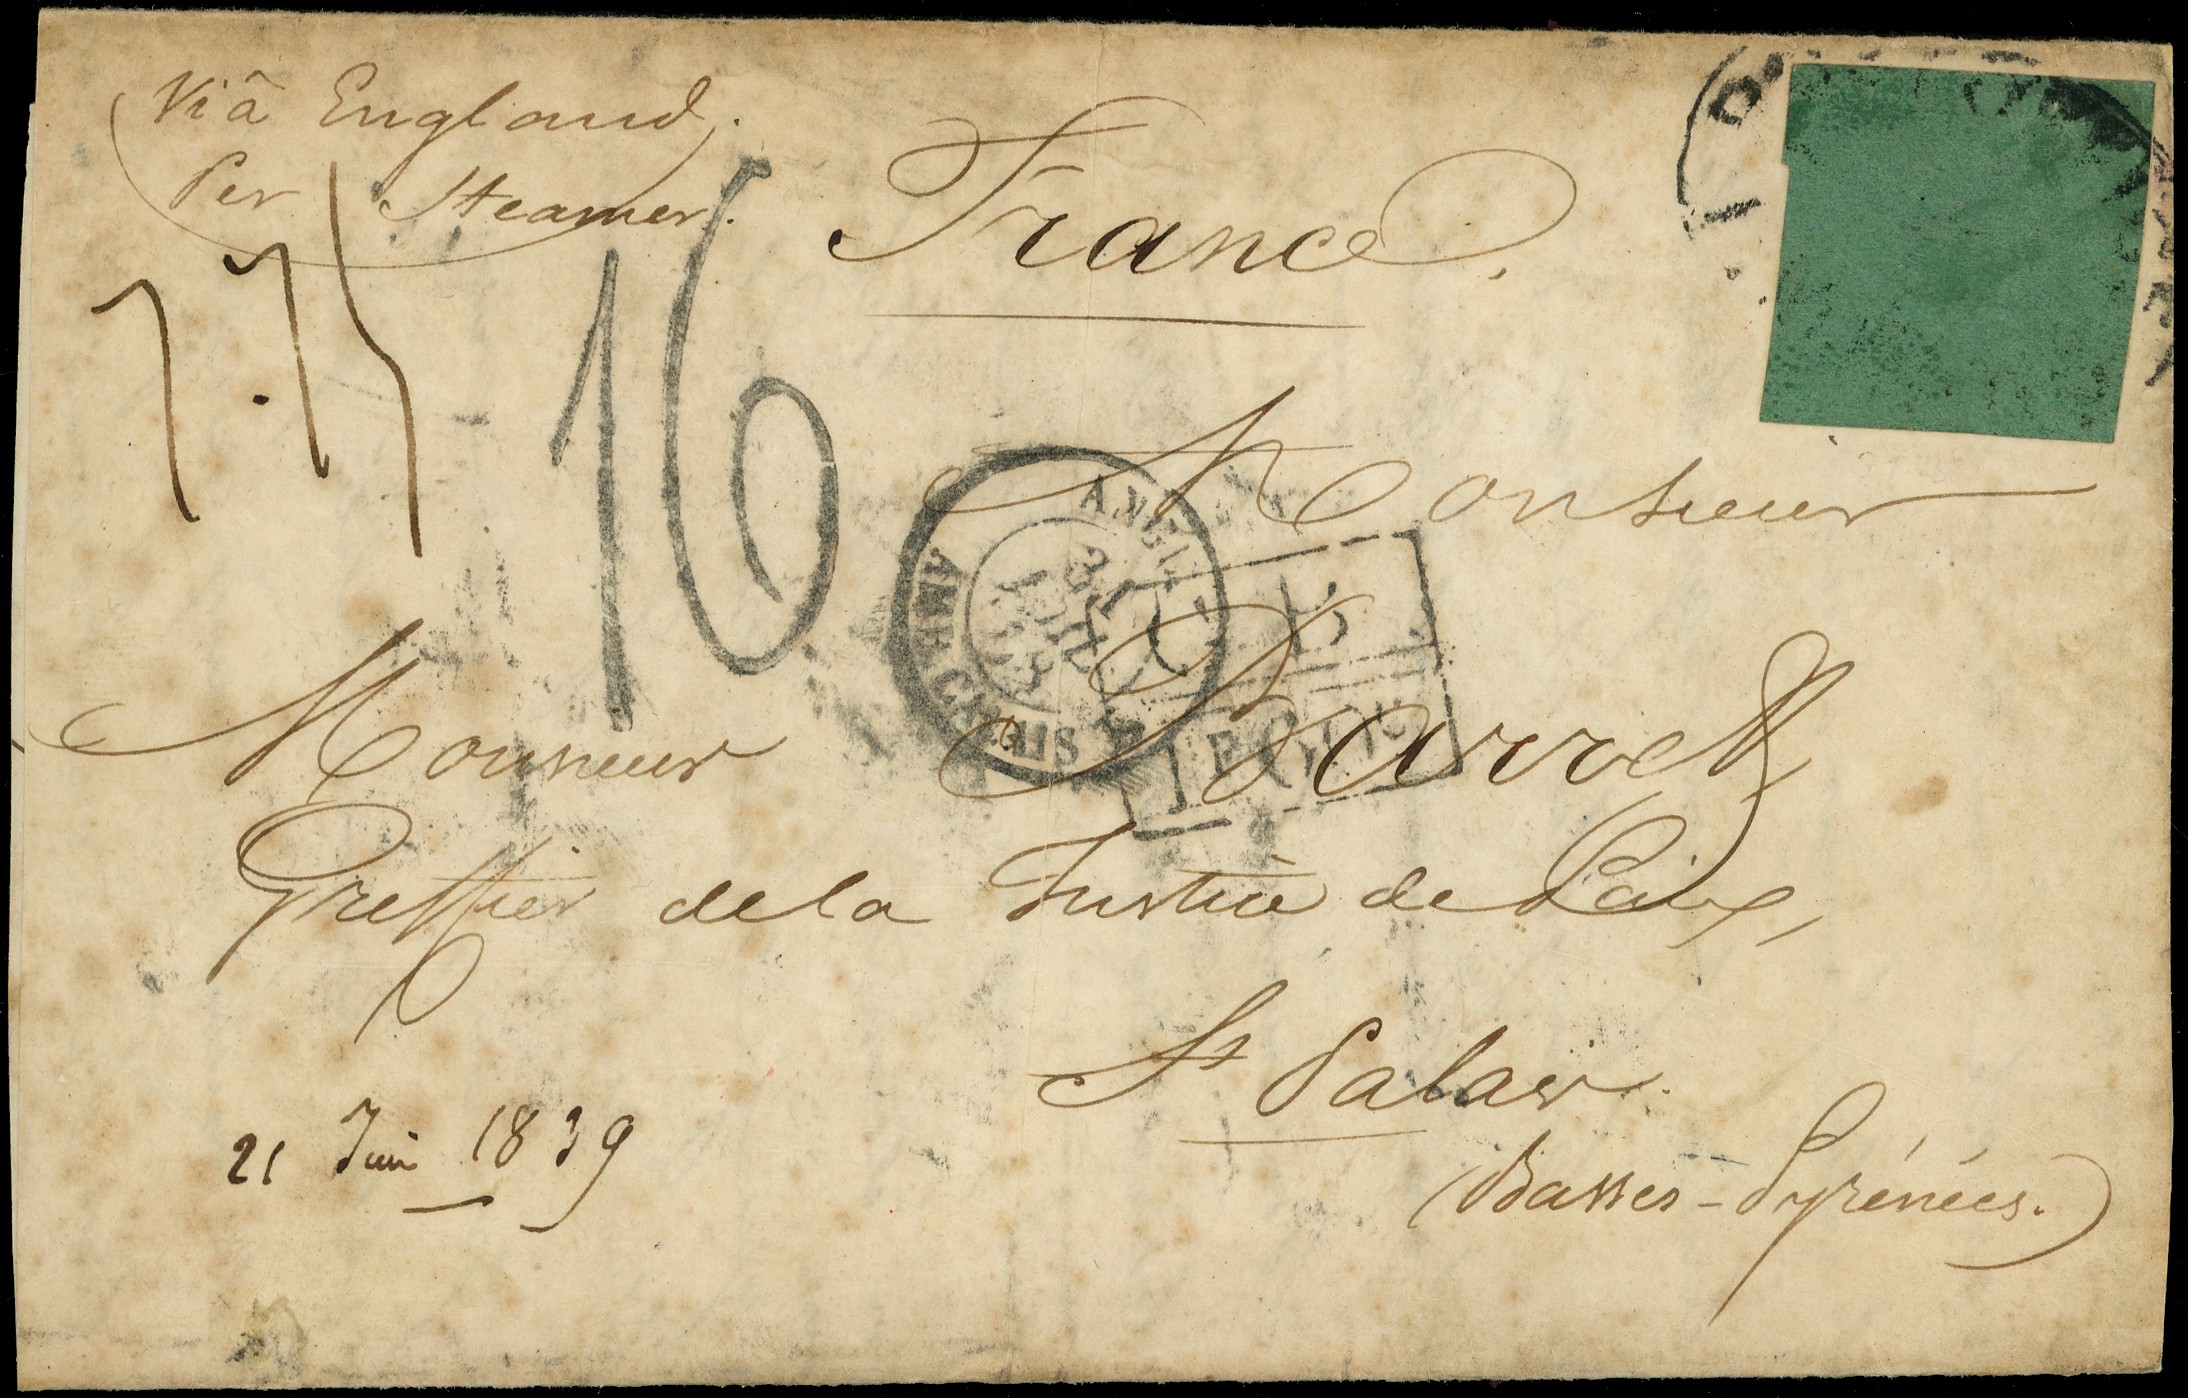 Viâ England.
Per Steamer.
France.
16
Monsieur
Monsieur Barret
Greffier de la Justice de Paix,
St Palais.
(Basses-Pyrénées.)
21 Juin 1839
ANGL.
AMB. CALAIS